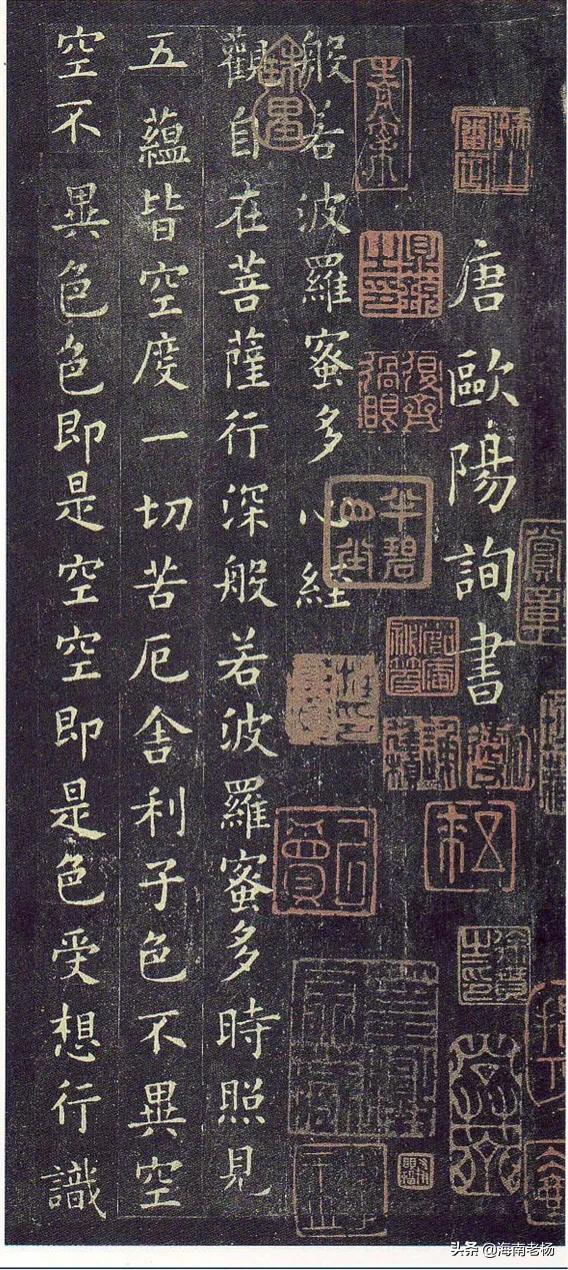 唐歐陽詢書
般若波羅蜜多心経
觀自在菩薩行深般若波羅蜜多時照見
五蘊皆空度一切苦厄舍利子色不異空
空不異色色即是空空即是色受想行識
头条 @海南老杨